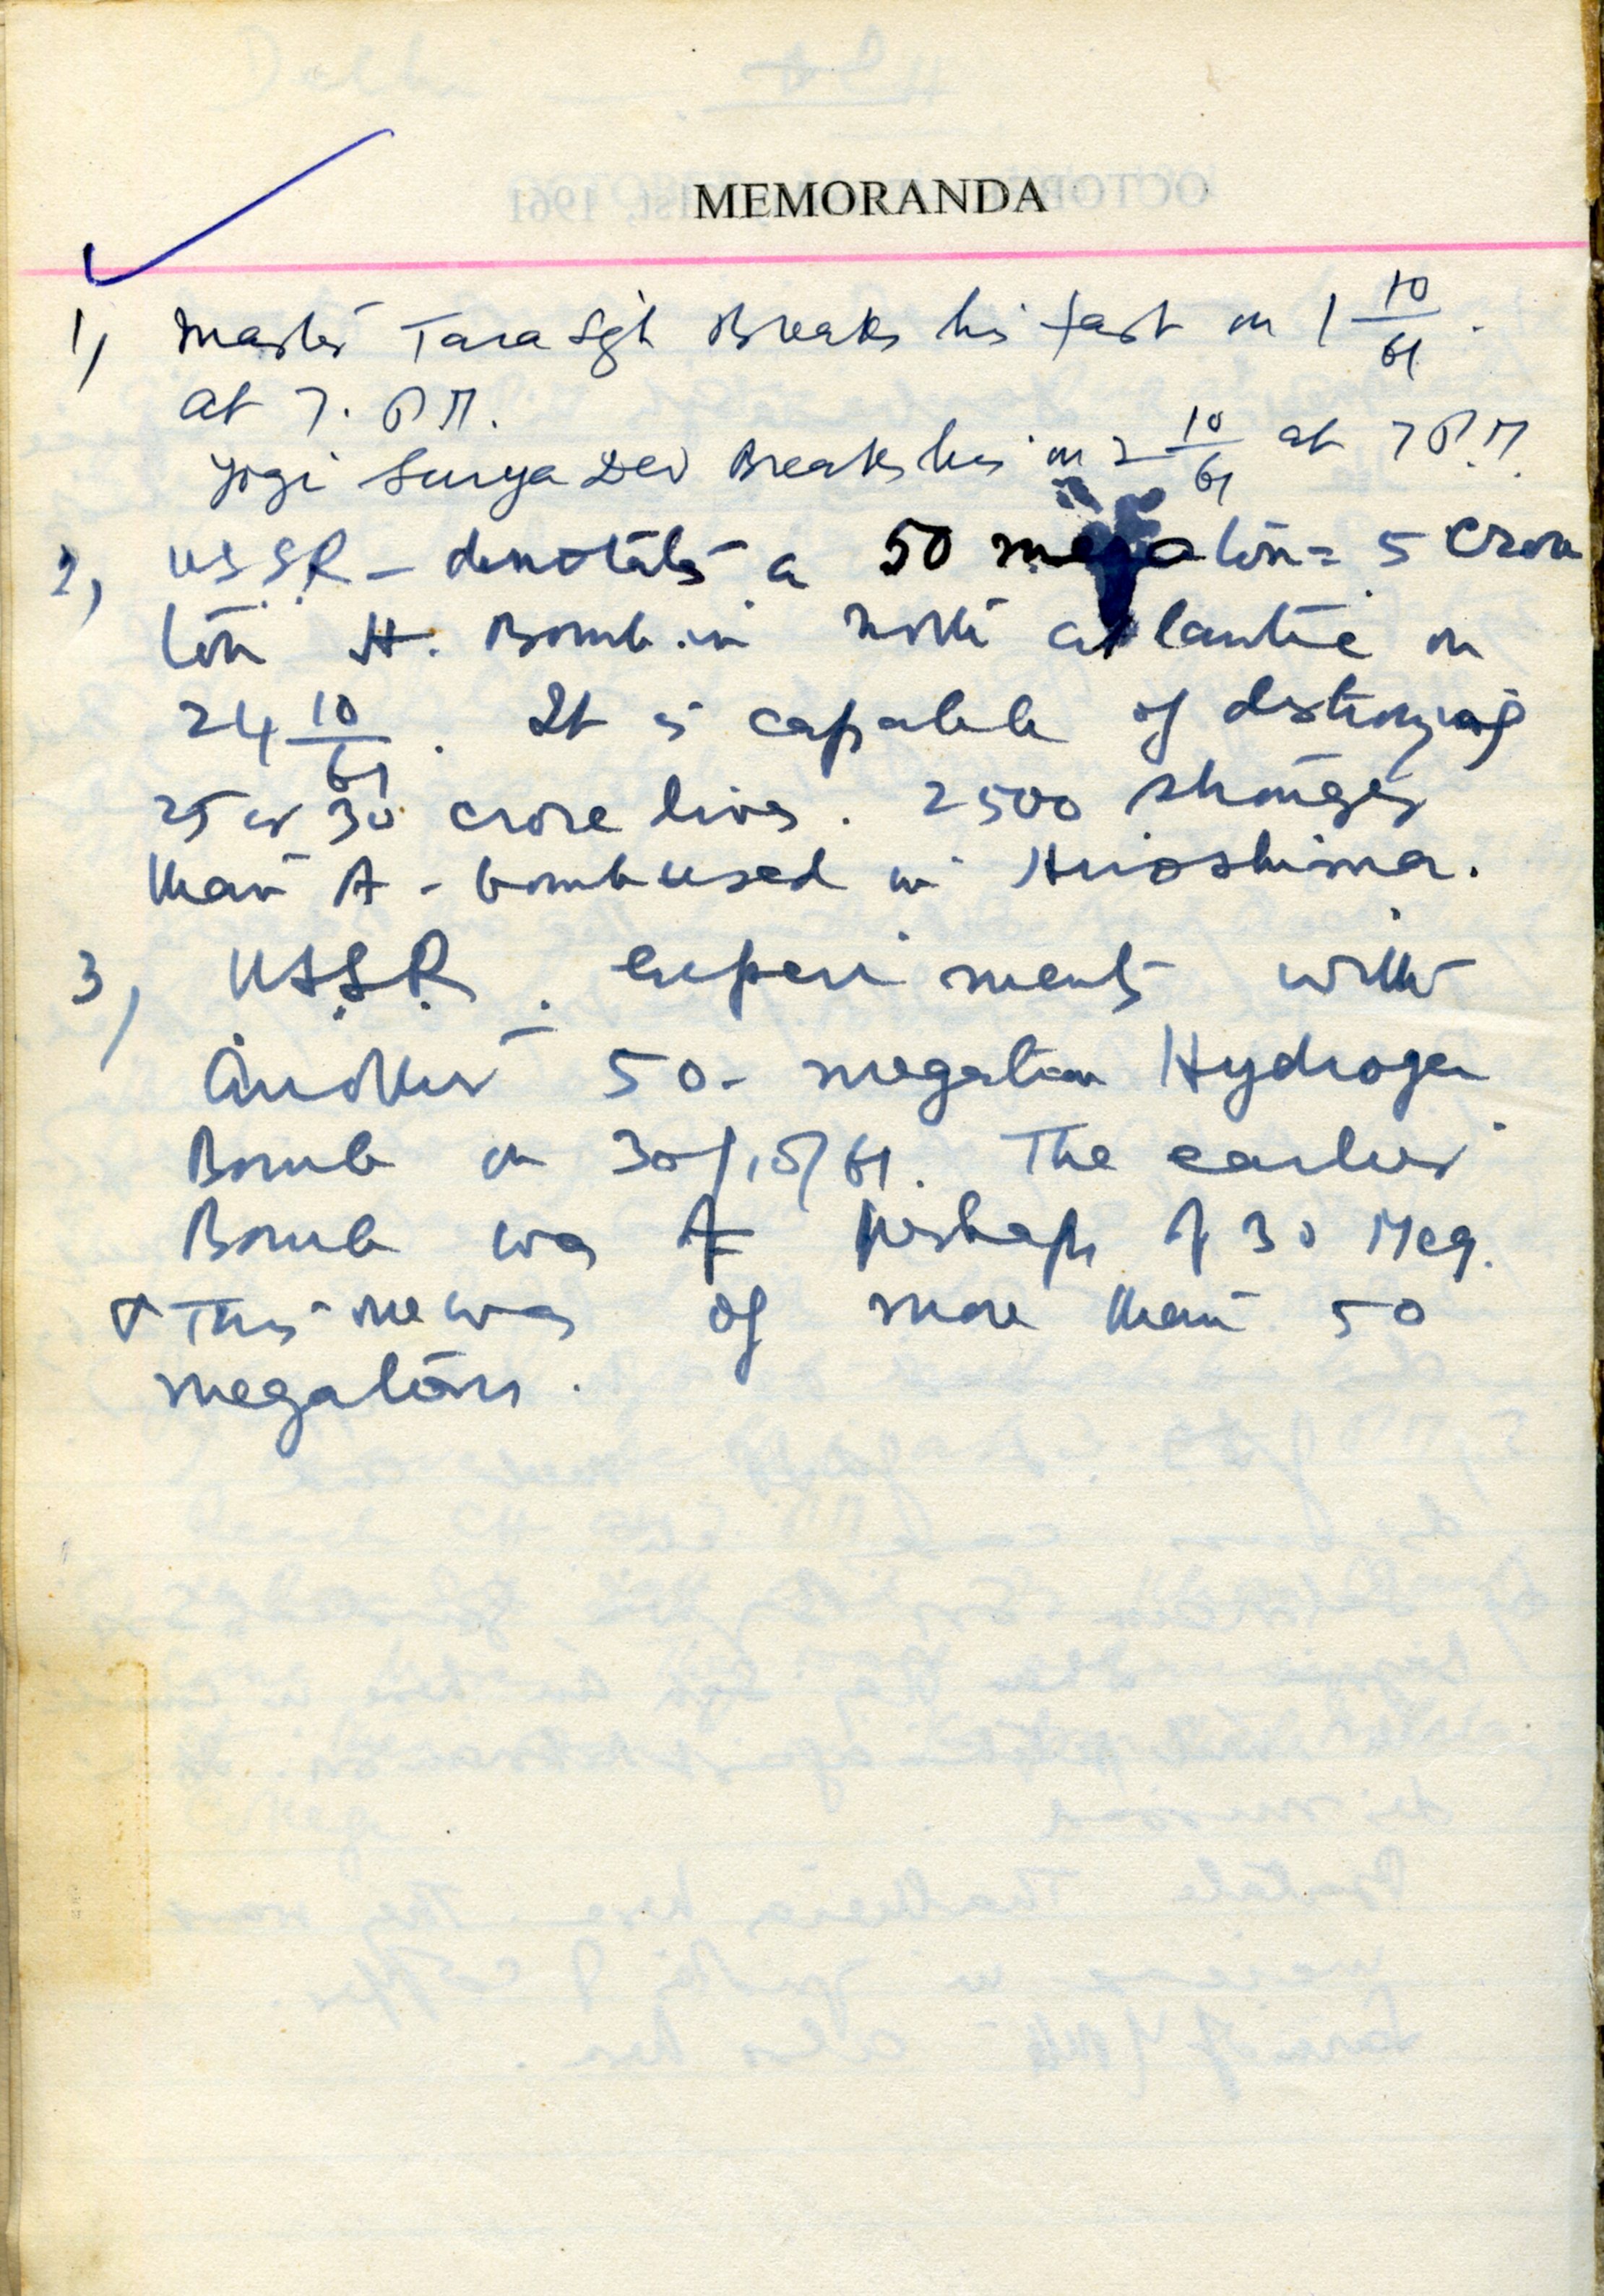 MEMORANDA
1) Master Tara Sgh Breaks his fast on 1 10/61.
at 7. PM.
Yogi Surya Dev Breaks his on 2 10/61 at 7 P.M.
2) U.S.S.R - denotates a 50 megaton = 5 Crore
ton H. Bomb in North Atlantic on
24 10/61. It is capable of destroying
25 or 30 crore lives. 2500 stronger
than A - bomb used in Hiroshima.
3) U.S.S.R. experiments with
Another 50 - megaton Hydrogen
Bomb on 30/10/61. The earlier
Bomb was of perhaps of 30 Meg.
& This one was of more than 50
megatons.